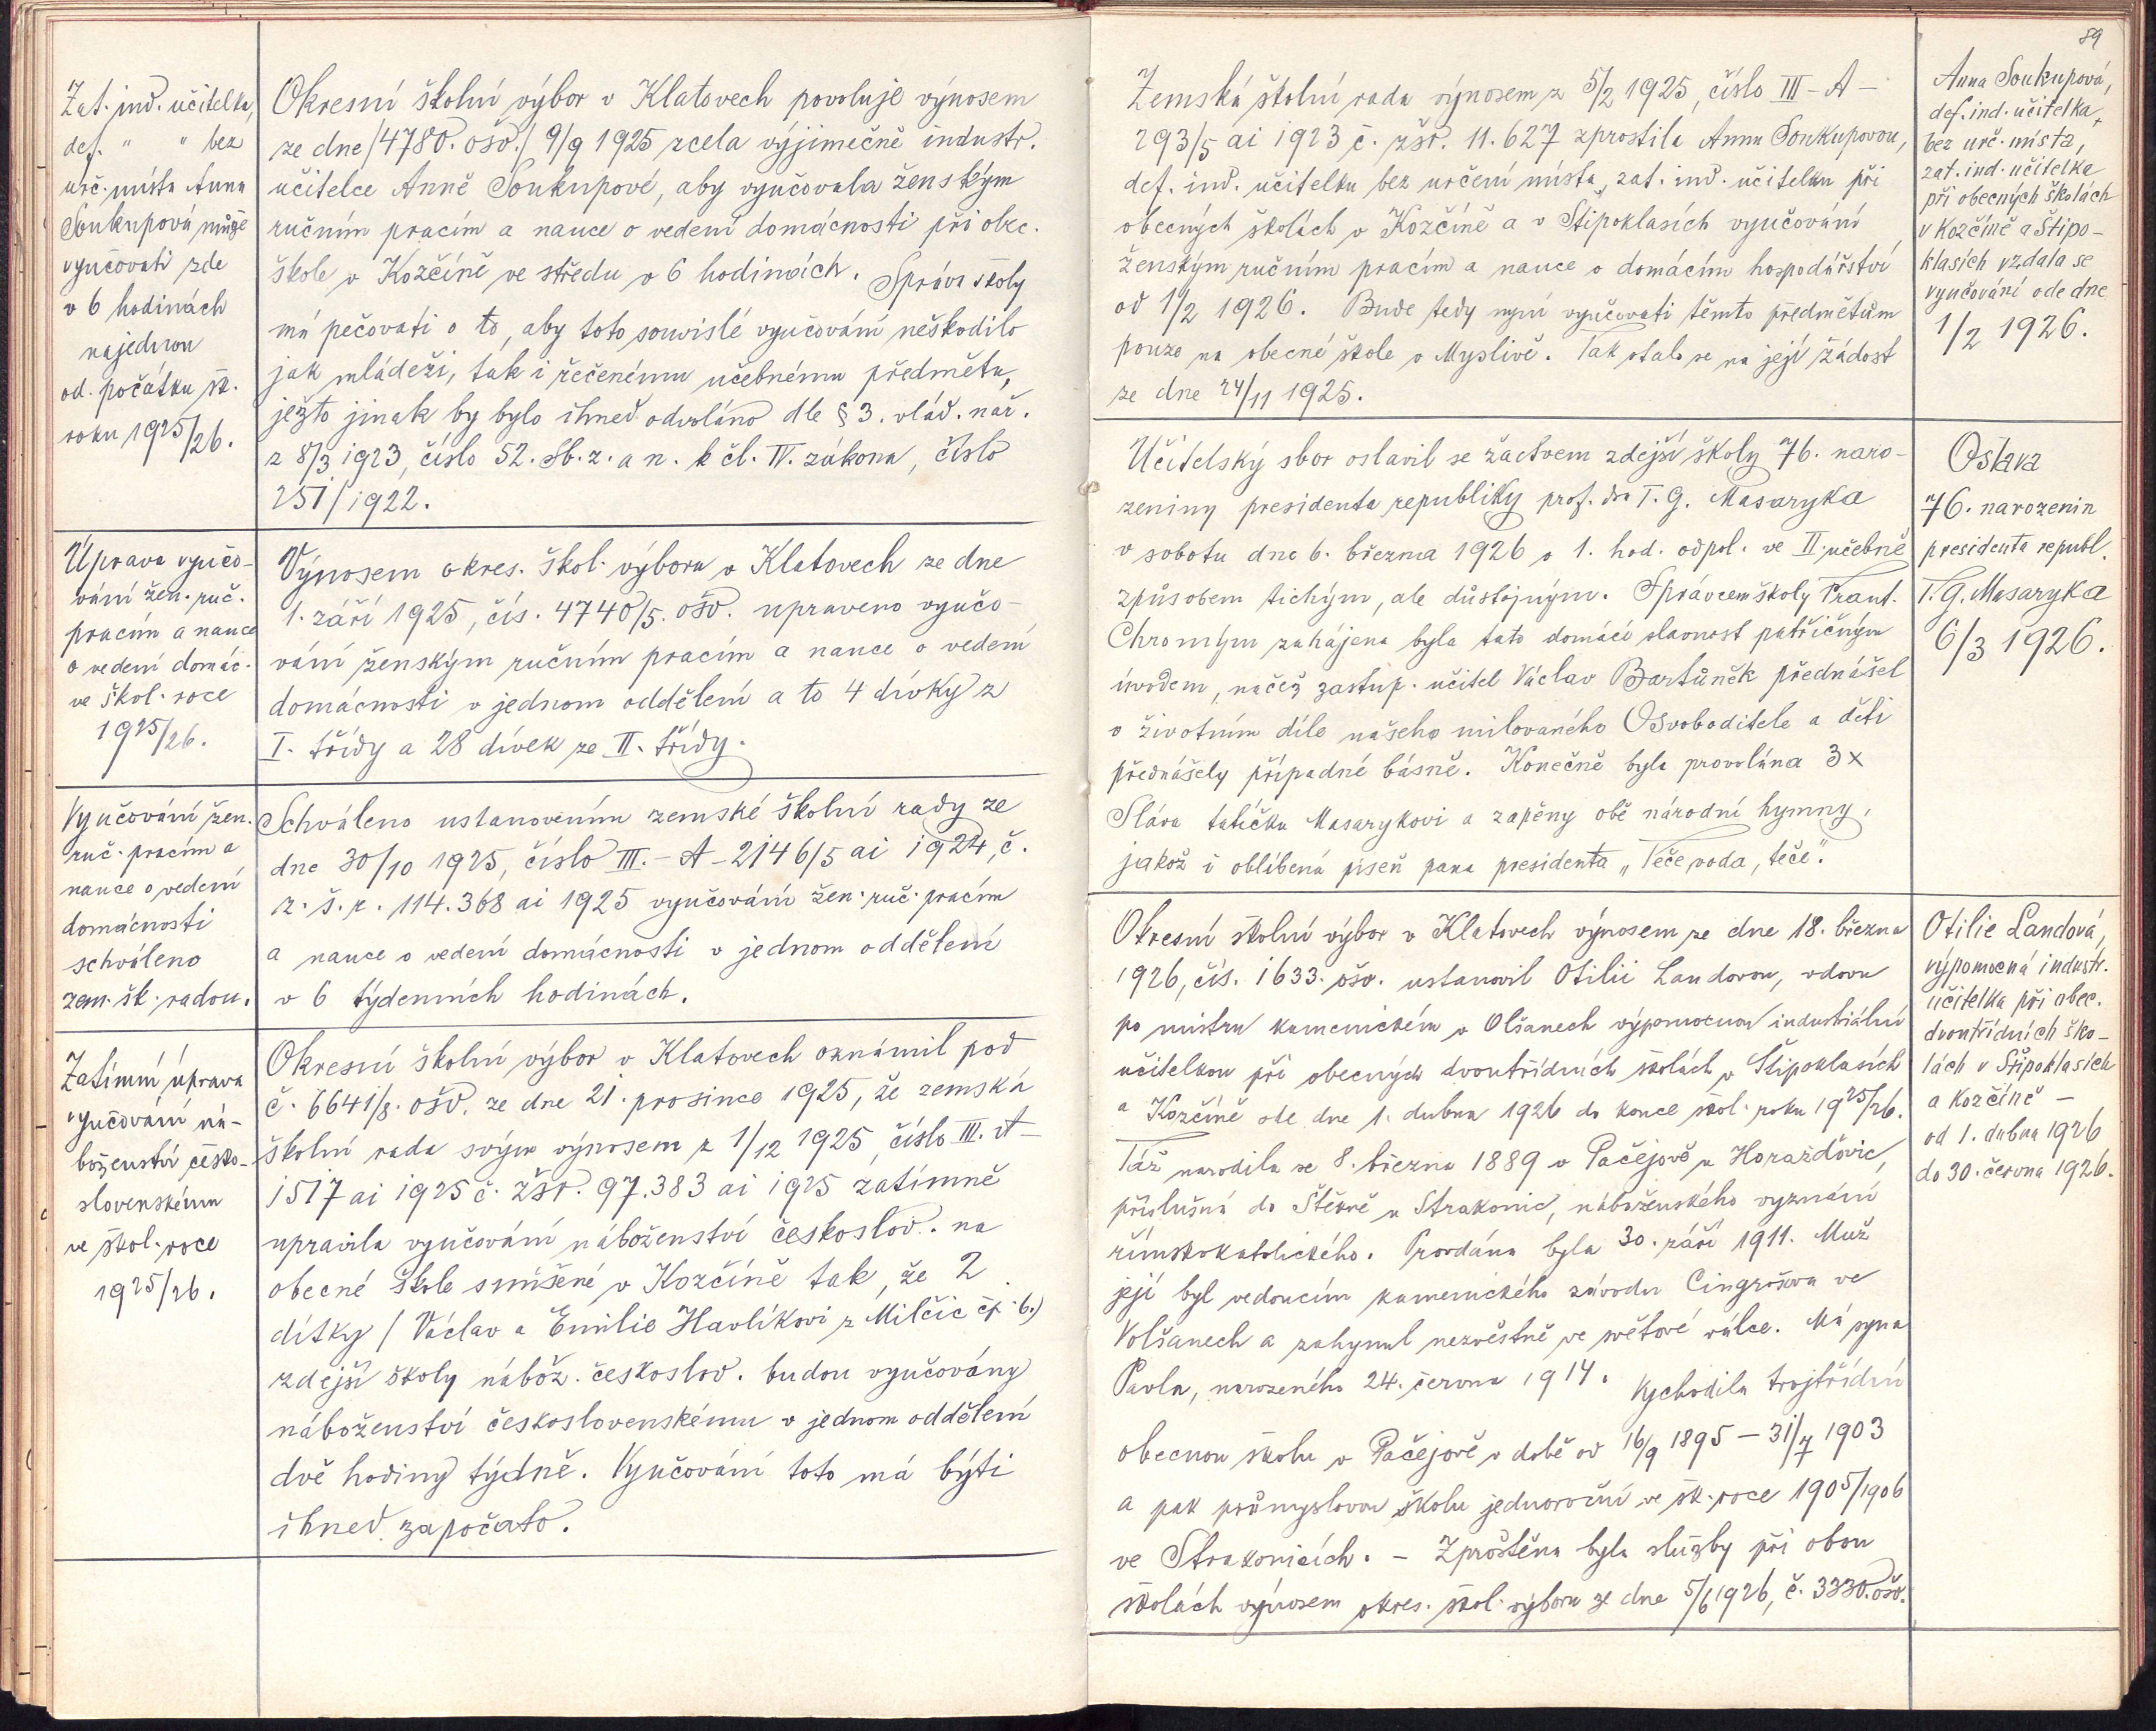 Zat. ind. učitelka,
def. " " bez
urč. místa Anna
Soukupová může
vyučovati zde
v 6 hodinách
najednou
od počátku šk.
roku 1925/26.
Okresní školní výbor v Klatovech povoluje výnosem
ze dne /4780. ošv./ 9/9 1925 zcela výjimečně industr.
učitelce Anně Soukupové, aby vyučovala ženským
ručním pracím a nauce o vedení domácnosti při obec.
škole v Kozčíně ve středu v 6 hodinách. Správa školy
má pečovati o to, aby toto souvislé vyučování neškodilo
jak mládeži, tak i řečenému učebnému předmětu,
ježto jinak by bylo ihned odvoláno dle § 3. vlád. nař.
z 8/3 1923, číslo 52. Sb. z. a n. k čl. IV. zákona, číslo
251/1922.
Úprava vyučo-
vání žen. ruč.
pracím a nauce
o vedení domác.
ve škol. roce
1925/26.
Výnosem okres. škol. výboru v Klatovech ze dne
1. září 1925, čís. 4740/5. ošv. upraveno vyučo-
vání ženským ručním pracím a nauce o vedení
domácnosti v jednom oddělení a to 4 dívky z
I. třídy a 28 dívek ze II. třídy.
Vyučování žen.
ruč. pracím a
nauce o vedení
domácnosti
schváleno
zem. šk. radou.
Schváleno ustanovením zemské školní rady ze
dne 30/10 1925, číslo III. - A - 2146/5 ai 1924, č.
z. š. r. 114.368 ai 1925 vyučování žen. ruč. pracím
a nauce o vedení domácnosti v jednom oddělení
v 6 týdenních hodinách.
Zatímní úprava
vyučování ná-
boženství česko-
slovenskému
ve škol. roce
1925/26.
Okresní školní výbor v Klatovech oznámil pod
č. 6641/8. ošv. ze dne 21. prosince 1925, že zemská
školní rada svým výnosem z 1/12 1925, číslo III. A -
1517 ai 1925 č. zšr. 97.383 ai 1925 zatímně
upravila vyučování náboženství českoslov. na
obecné škole smíšené v Kozčíně tak, že 2
dítky / Václav a Emilie Havlíkovi z Milčic čp. 6.)
zdejší školy nábož. českoslov. budou vyučovány
náboženství československému v jednom oddělení
dvě hodiny týdně. Vyučování toto má býti
ihned započato.
89
Zemská školní rada výnosem z 5/2 1925, číslo III - A -
293/5 ai 1923 č. zšr. 11.627 zprostila Annu Soukupovou,
def. ind. učitelku bez určení místa, zat. ind. učitelku při
obecných školách v Kozčíně a v Štipoklasích vyučování
ženským ručním pracím a nauce o domácím hospodářství
od 1/2 1926. Bude tedy nyní vyučovati těmto předmětům
pouze na obecné škole v Myslivě. Tak stalo se na její žádost
ze dne 24/11 1925.
Anna Soukupová,
def. ind. učitelka,
bez urč. místa,
zat. ind. učitelka
při obecných školách
v Kozčíně a Štipo-
klasích vzdala se
vyučování ode dne
1/2 1926.
Učitelský sbor oslavil se žactvem zdejší školy 76. naro-
zeniny presidenta republiky prof. dra T. G. Masaryka
v sobotu dne 6. března 1926 o 1. hod. odpol. ve II. učebně
způsobem tichým, ale důstojným. Správcem školy Frant.
Chromým zahájena byla tato domácí slavnost patřičným
úvodem, načež zastup. učitel Václav Bartůněk přednášel
o životním díle našeho milovaného Osvoboditele a děti
přednášely případné básně. Konečně byla provolána 3x
Sláva tatíčku Masarykovi a zapěny obě národní hymny,
jakož i oblíbená píseň pana presidenta „Teče voda, teče".
Oslava
76. narozenin
presidenta republ.
T. G. Masaryka
6/3 1926.
Okresní školní výbor v Klatovech výnosem ze dne 18. března
1926, čís. 1633. ošv. ustanovil Otilii Landovou, vdovu
po mistru kamenickém v Olšanech výpomocnou industriální
učitelkou při obecných dvoutřídních školách v Štipoklasích
a Kozčíně ode dne 1. dubna 1926 do konce škol. roku 1925/26.
Táž narodila se 8. března 1889 v Pačejově u Horažďovic,
příslušná do Štěkně u Strakonic, náboženského vyznání
římskokatolického. Provdána byla 30. září 1911. Muž
její byl vedoucím kamenického závodu Cingrošova ve
Volšanech a zahynul nezvěstně ve světové válce. Má syna
Pavla, narozeného 24. června 1914. Vychodila trojtřídní
obecnou školu v Pačejově v době od 16/9 1895 - 31/7 1903
a pak průmyslovou školu jednoroční ve šk. roce 1905/1906
ve Strakonicích. - Zproštěna byla služby při obou
školách výnosem okres. škol. výboru ze dne 5/6 1926, č. 3330. ošv.
Otilie Landová,
výpomocná industr.
učitelka při obec.
dvoutřídních ško-
lách v Štipoklasích
a Kozčíně -
od 1. dubna 1926
do 30. června 1926.